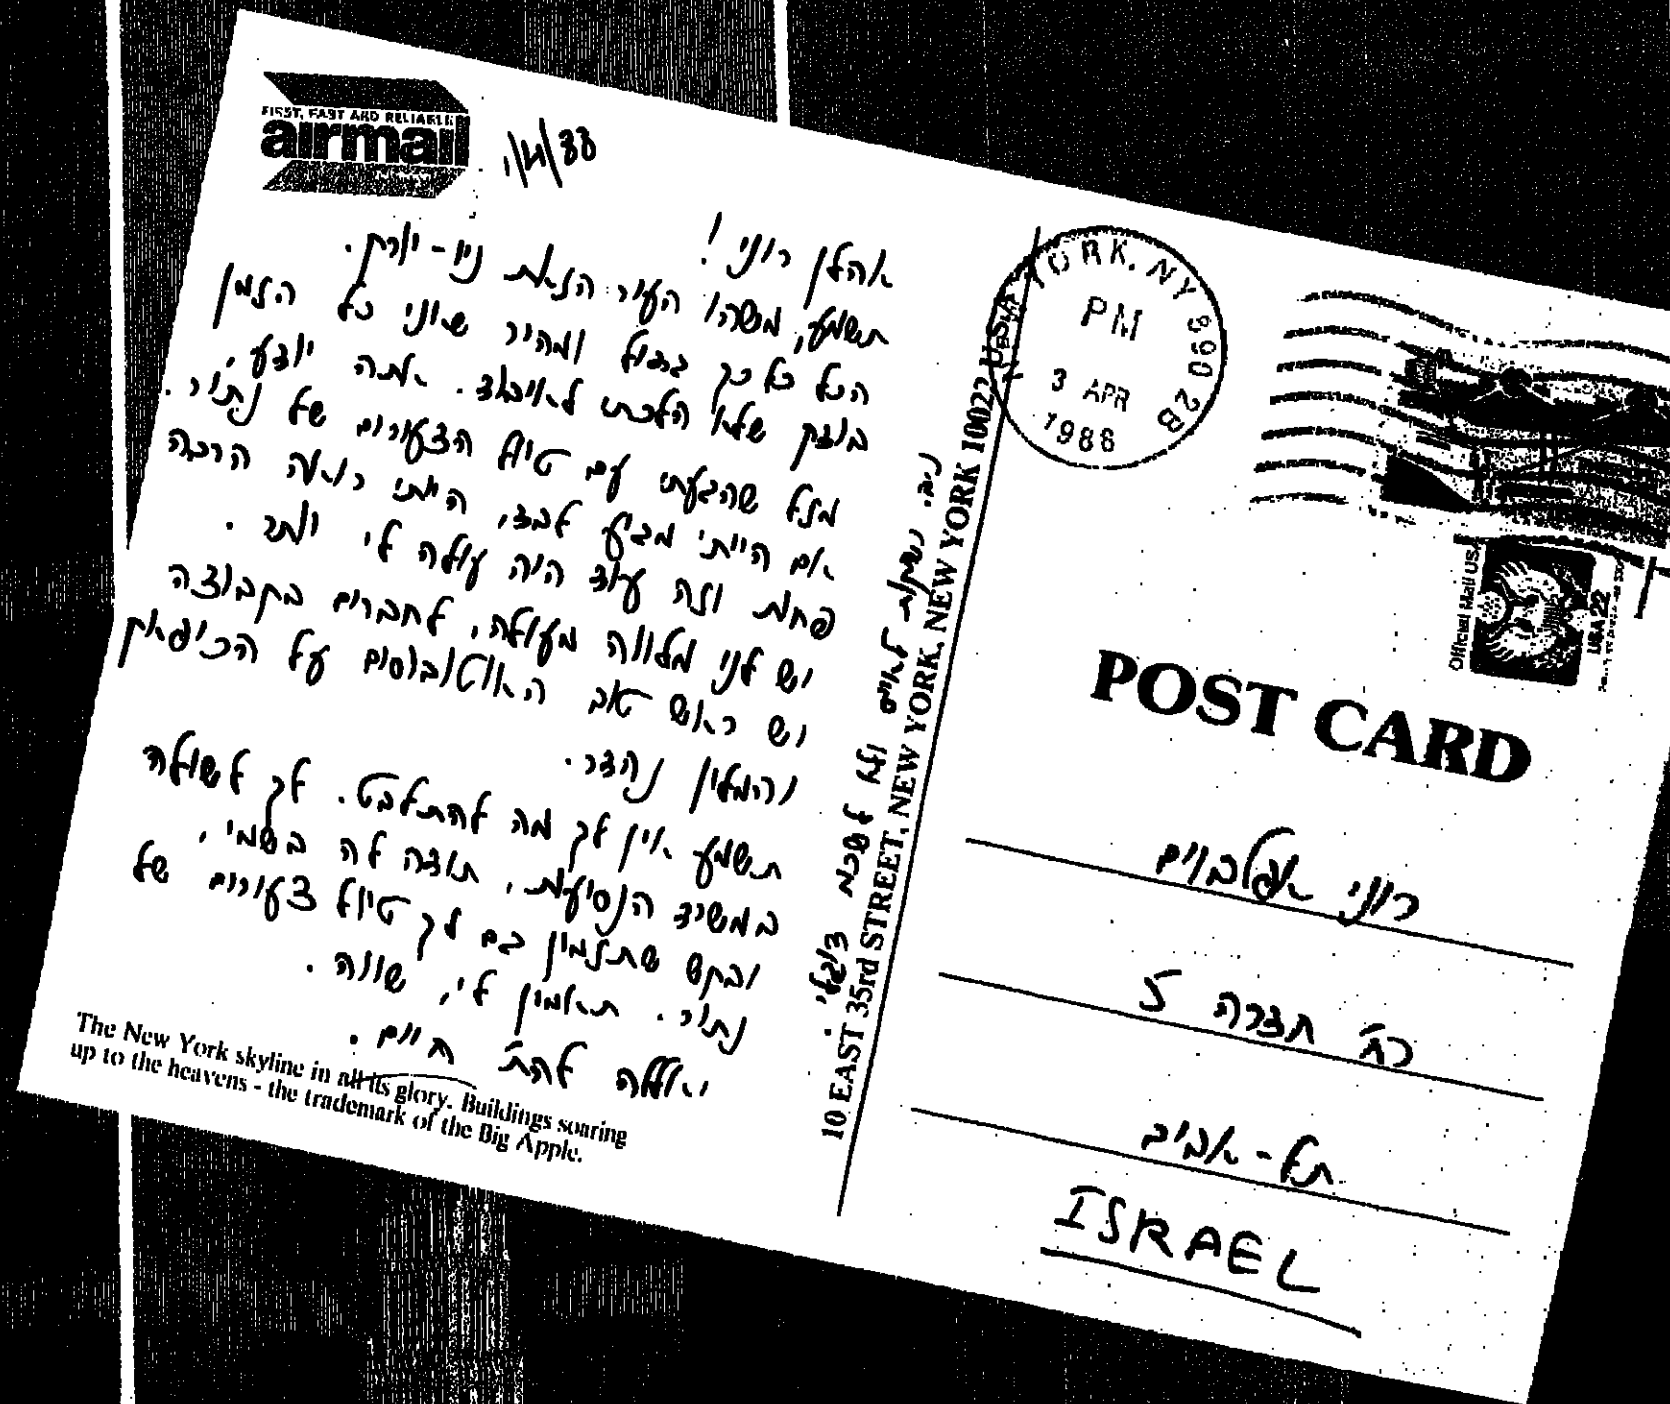 FIRST, FAST AND RELIABLE
airmail
אהלן רוני!
תשמע, משהו העיר הזאת ניו-יורק.
הכל כל כך גדול ומהיר שאני כל הזמן
בודק שלא הלכתי לאיבוד. אתה יודע,
מזל שהגעתי עם טיול הצעירים של נתור.
אם הייתי מגיע לבד, הייתי רואה הרבה
פחות וזה עוד היה עולה לי יותר.
יש לנו מלווה מעולה, לחברים בקבוצה
יש ראש טוב האוטובוסים על הכיפאק
והמלון נהדר.
תשמע אין לך מה להתלבט. לך לשולה
במשרד הנסיעות, תודה לה בשמי,
ובקש שתזמין גם לך טיול צעירים של
נתור. תאמין לי, שווה.
יאללה להת׳ חיים.
נ.ב. נשיקות לאמא ולא לשכוח
The New York skyline in all its glory. Buildings soaring
up to the heavens - the trademark of the Big Apple.
10 EAST 35rd STREET, NEW YORK, NEW YORK 10022 USA
NEW YORK, NY 890 2B
PM
3 APR
1986
Official Mail USA
USA 22
POST CARD
רוני
רח׳ חדרה 5
תל-אביב
ISRAEL